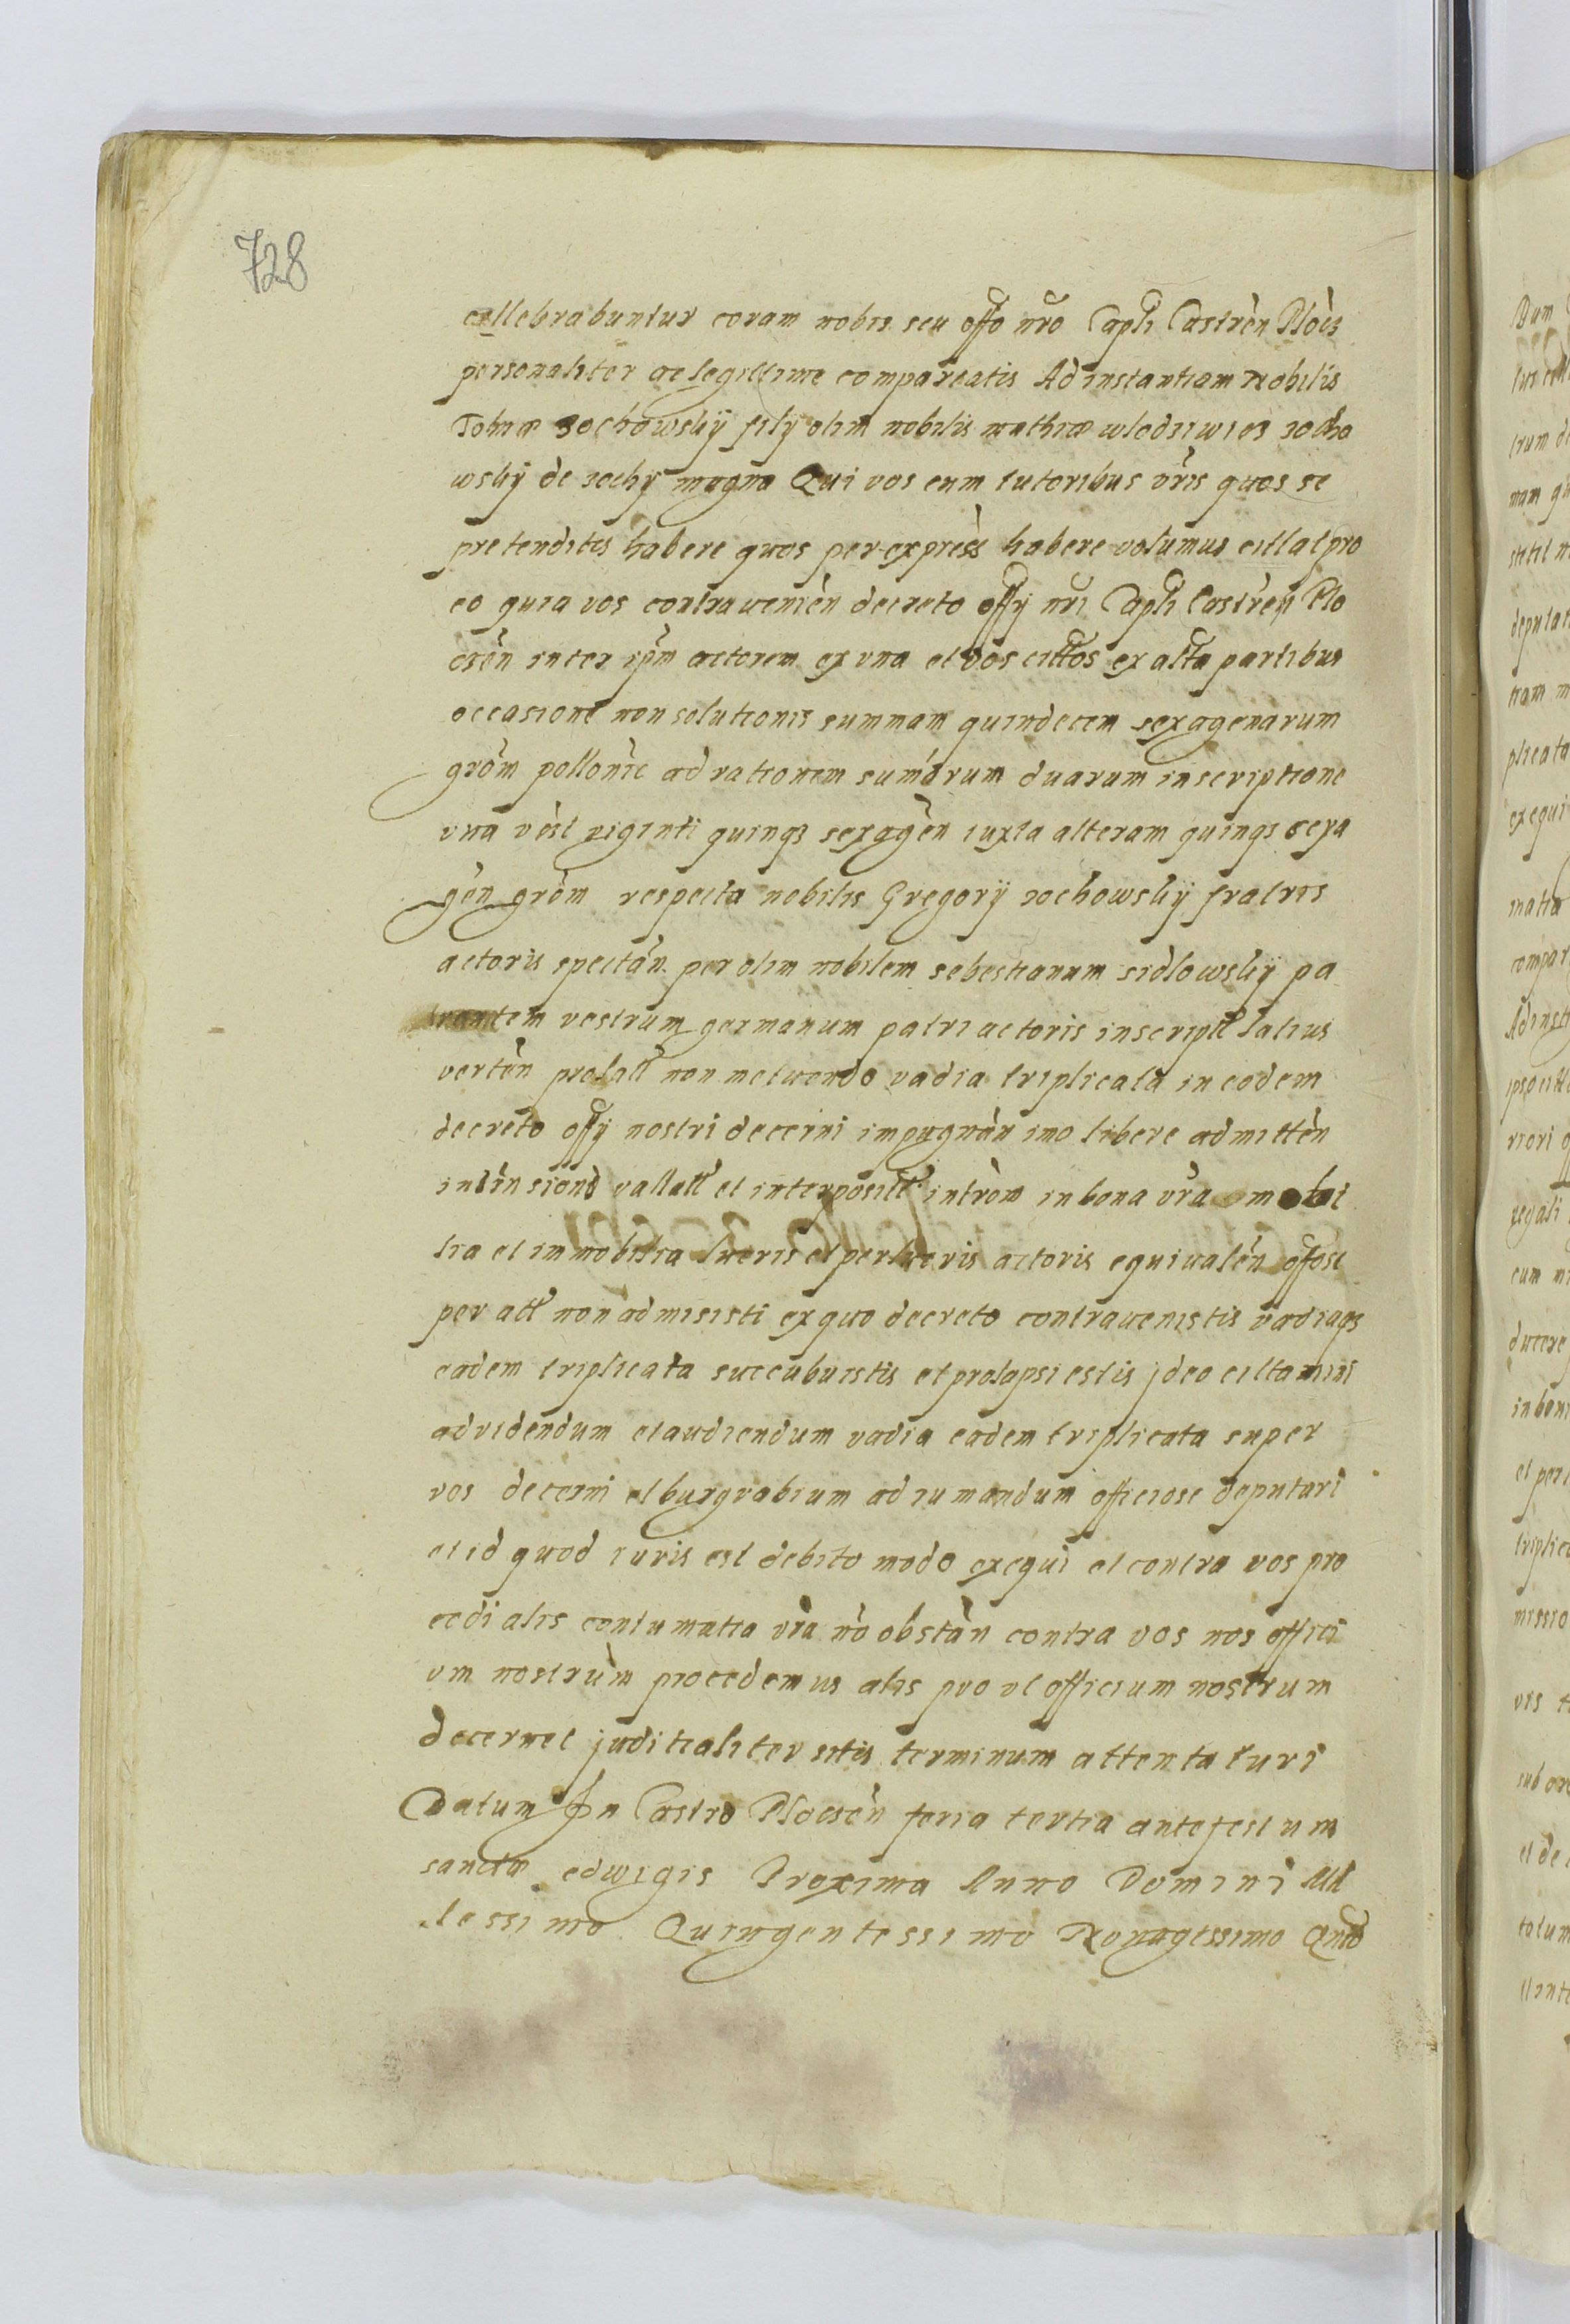 728
cellebrabuntur coram nobis seu offo nro Capli Castren Plocz
personaliter ac legittime compareatis Ad instantiam Nobilis
Tobiæ zochowskÿ filÿ olim nobilis mathiæ wlodziwicz zocho
wskÿ de zochÿ magna Qui vos cum tutoribus vris quos se
pretenditis habere quos per expresse habere volumus cittat pro
eo quia vos contravenien decreto offÿ nri Capli Castren Plo
cen inter ipm actorem ex una et vos cittos ex altra partibus
occasione non solutionis summam quindecem sexagenarum
grom pollonic ad rationem sumarum duarum inscriptione
una vest viginti quinqz sexagen iuxta alteram quinqz sexa
gen grom respectu nobilis Gregorÿ zochowskÿ fratris
actoris spectan per olim nobilem sebestianum sidlowskÿ pa
rentem vestrum germanum patri actoris inscript latius
verten prolatt non metuendo vadia triplicata in eodem
decreto offÿ nostri decerni impugnan imo libere admitten
vallatt et interpositt introm in bona vra mobi
lia et immobilia lucris et perlucris actoris equivalen offose
per act non admisisti ex quo decreto contravenistis vadiaqz
eadem triplicata succubuistis et prolapsi estis ideo cittamini
ad videndum et audiendum vadia eadem triplicata super
vos decerni et burgrabium ad sumandum officiose deputari
et id quod iuris est debito modo exequi et contra vos pro
cedi alis contumatia vra no obstan contra vos nos offici
um nostrum procedemus alis pro ut officium nostrum
decernet juditialiter sitis terminum attentaturi
Datum In Castro Plocen feria tertia ante festum
sanctæ edwigis Proxima Anno Domini Mil
lessimo Quingentessimo Nonagessimo